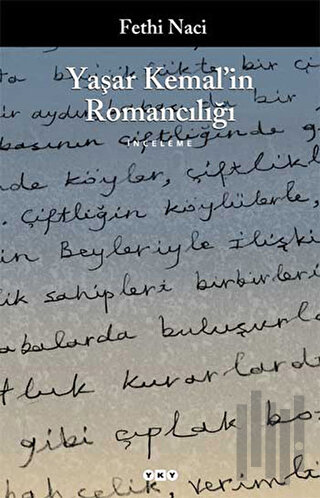 Fethi Naci
Yaşar Kemal'in
Romancılığı
İNCELEME
bir
bir aydın
başının çiftliğinde g
nde köyler, çiftlikl
Çiftliğin köylülerle,
in Beyleriyle İlişki
lik sahipleri birbirleri
abalarda buluşurla
tluk kurarlardı
gibi çıplak boz
bahçelik, verimli
YKY
kitap